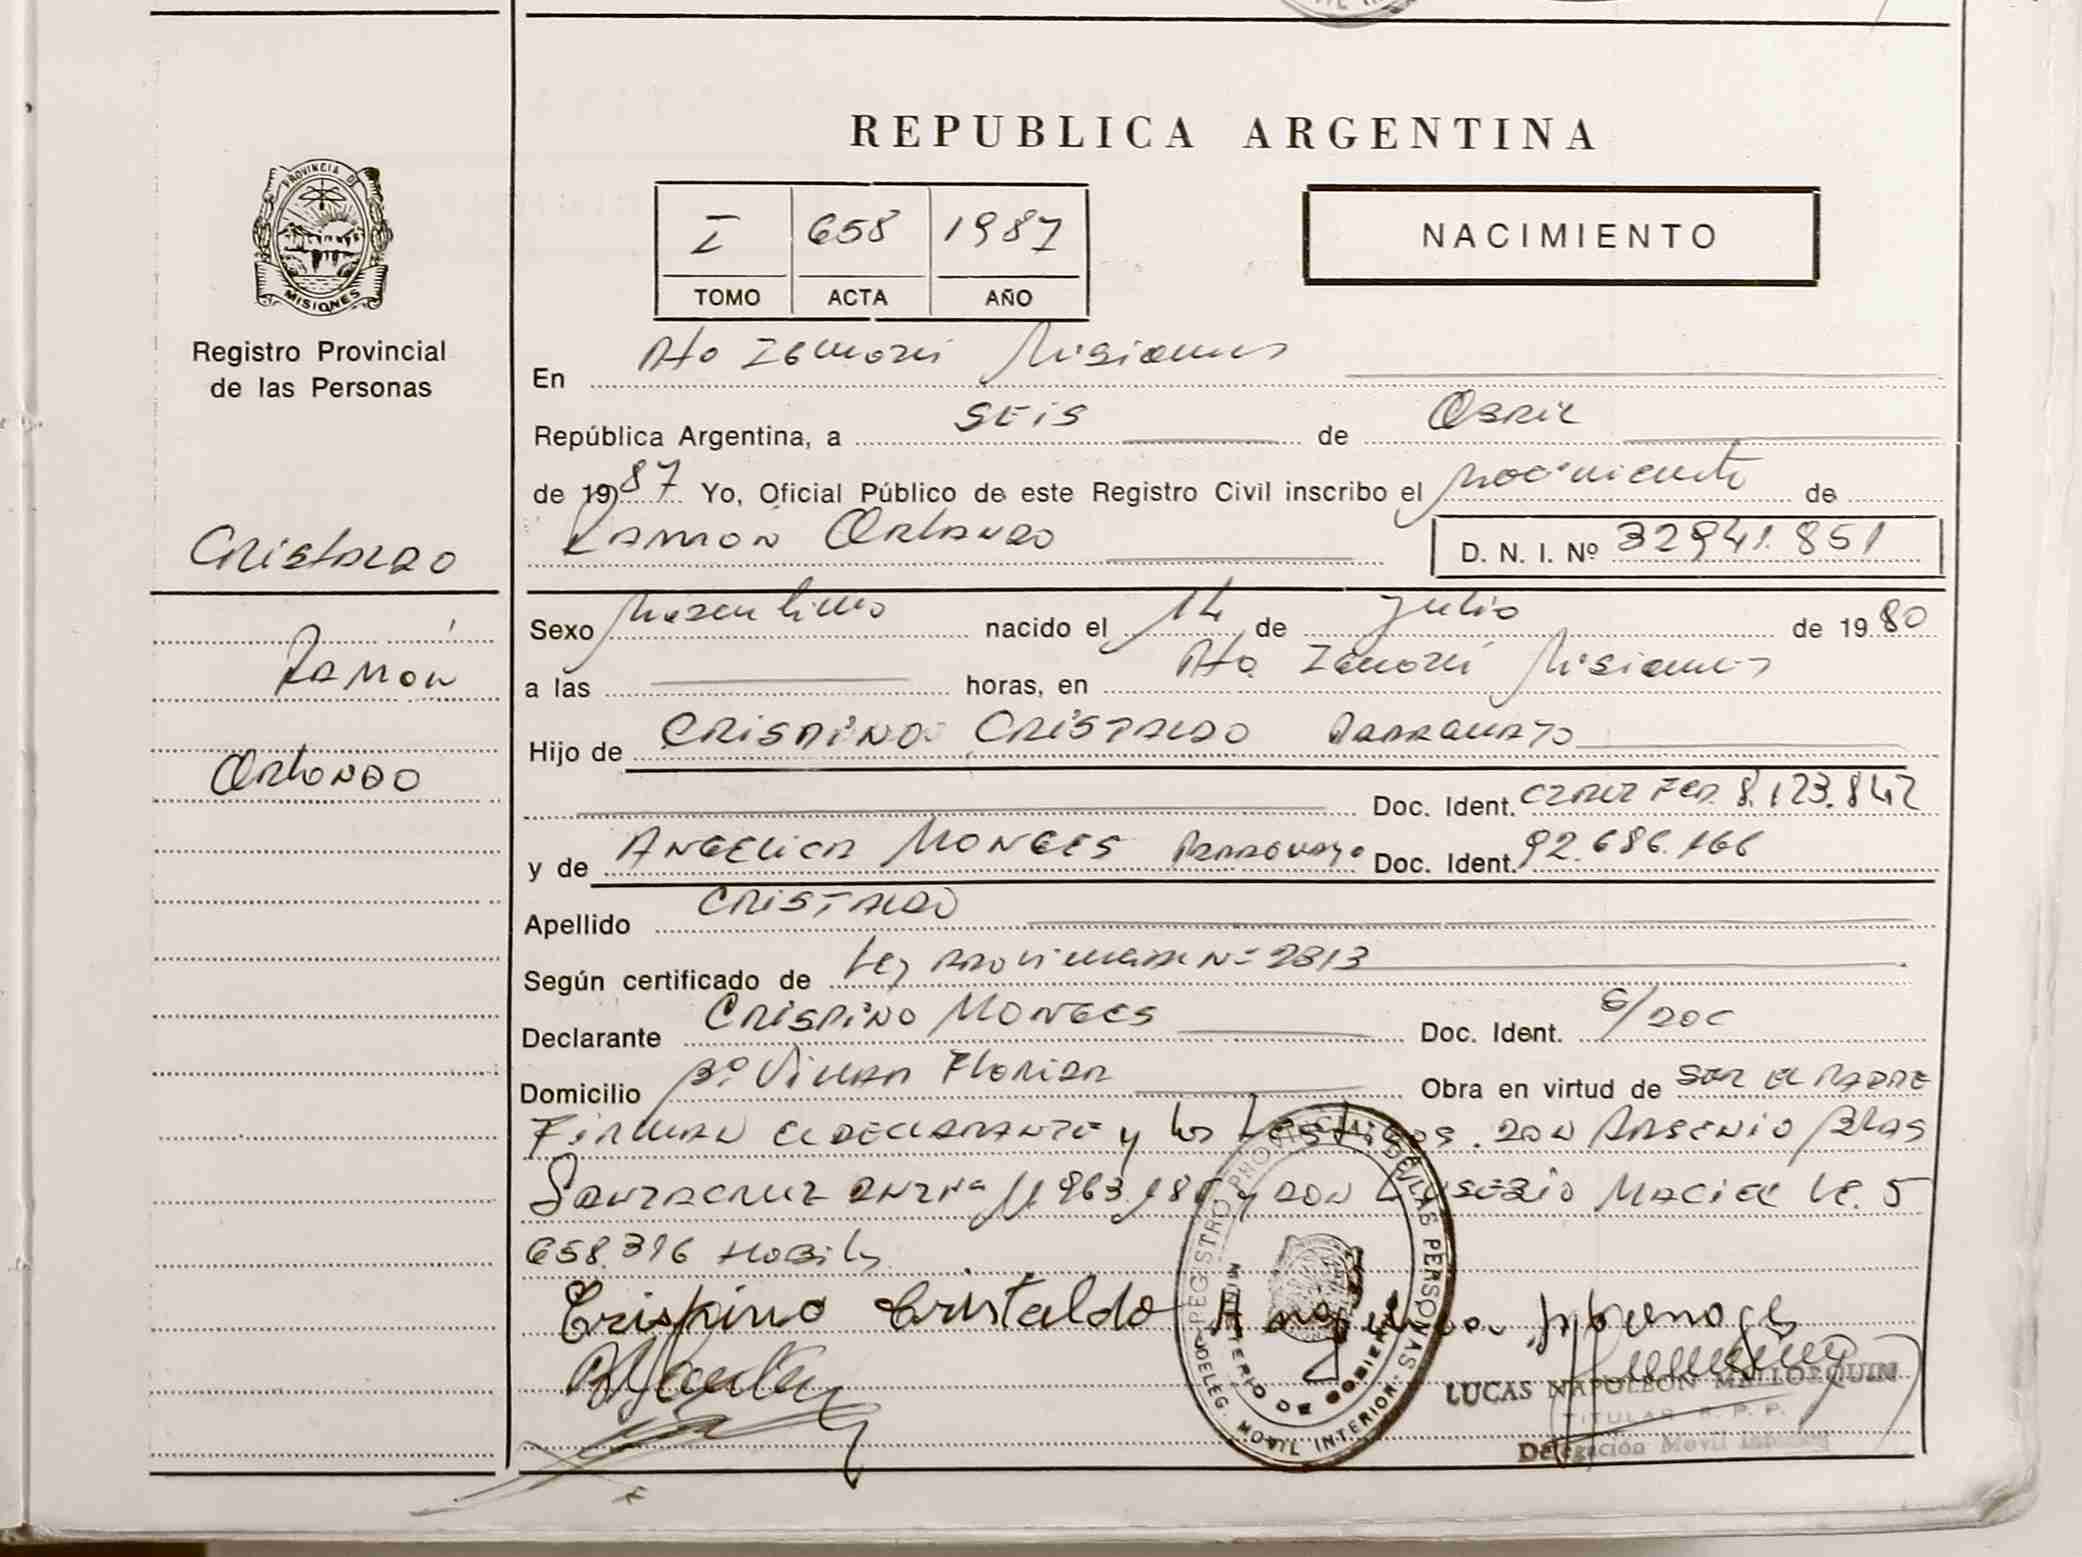 PROVINCIA DE
MISIONES
Registro Provincial
de las Personas
Cristaldo
Ramón
Orlando
REPUBLICA ARGENTINA
I 658 1987
TOMO ACTA AÑO
NACIMIENTO
En Pto Iguazú Misiones
República Argentina, a SEIS de Abril
de 1987 Yo, Oficial Público de este Registro Civil inscribo el nacimiento de
Ramón Orlando D. N. I. Nº 32941.851
Sexo Masculino nacido el 14 de Julio de 1980
a las horas, en Pto Iguazú Misiones
Hijo de CRISPINO CRISTALDO PARAGUAYO
Doc. Ident. 8.123.842
y de ANGELICA MONGES Paraguaya Doc. Ident. 92.686.166
Apellido CRISTALDO
Según certificado de Ley Provincial Nº 2313
Declarante CRISPINO MONGES Doc. Ident. S/DOC
Domicilio Bº Villa Florida Obra en virtud de SER EL PADRE
FIRMAN EL DECLARANTE y los testigos. DON ARSENIO BLAS
SANTACRUZ y DON EUSEBIO MACIEL LE. 5
658.396 HABIL
Crispino Cristaldo
REGISTRO PROVINCIAL DE LAS PERSONAS
MINISTERIO DE GOBIERNO
DELEG. MOVIL INTERIOR
LUCAS NAPOLEON MALLORQUIN
TITULAR R. P. P.
Delegación Movil Interior